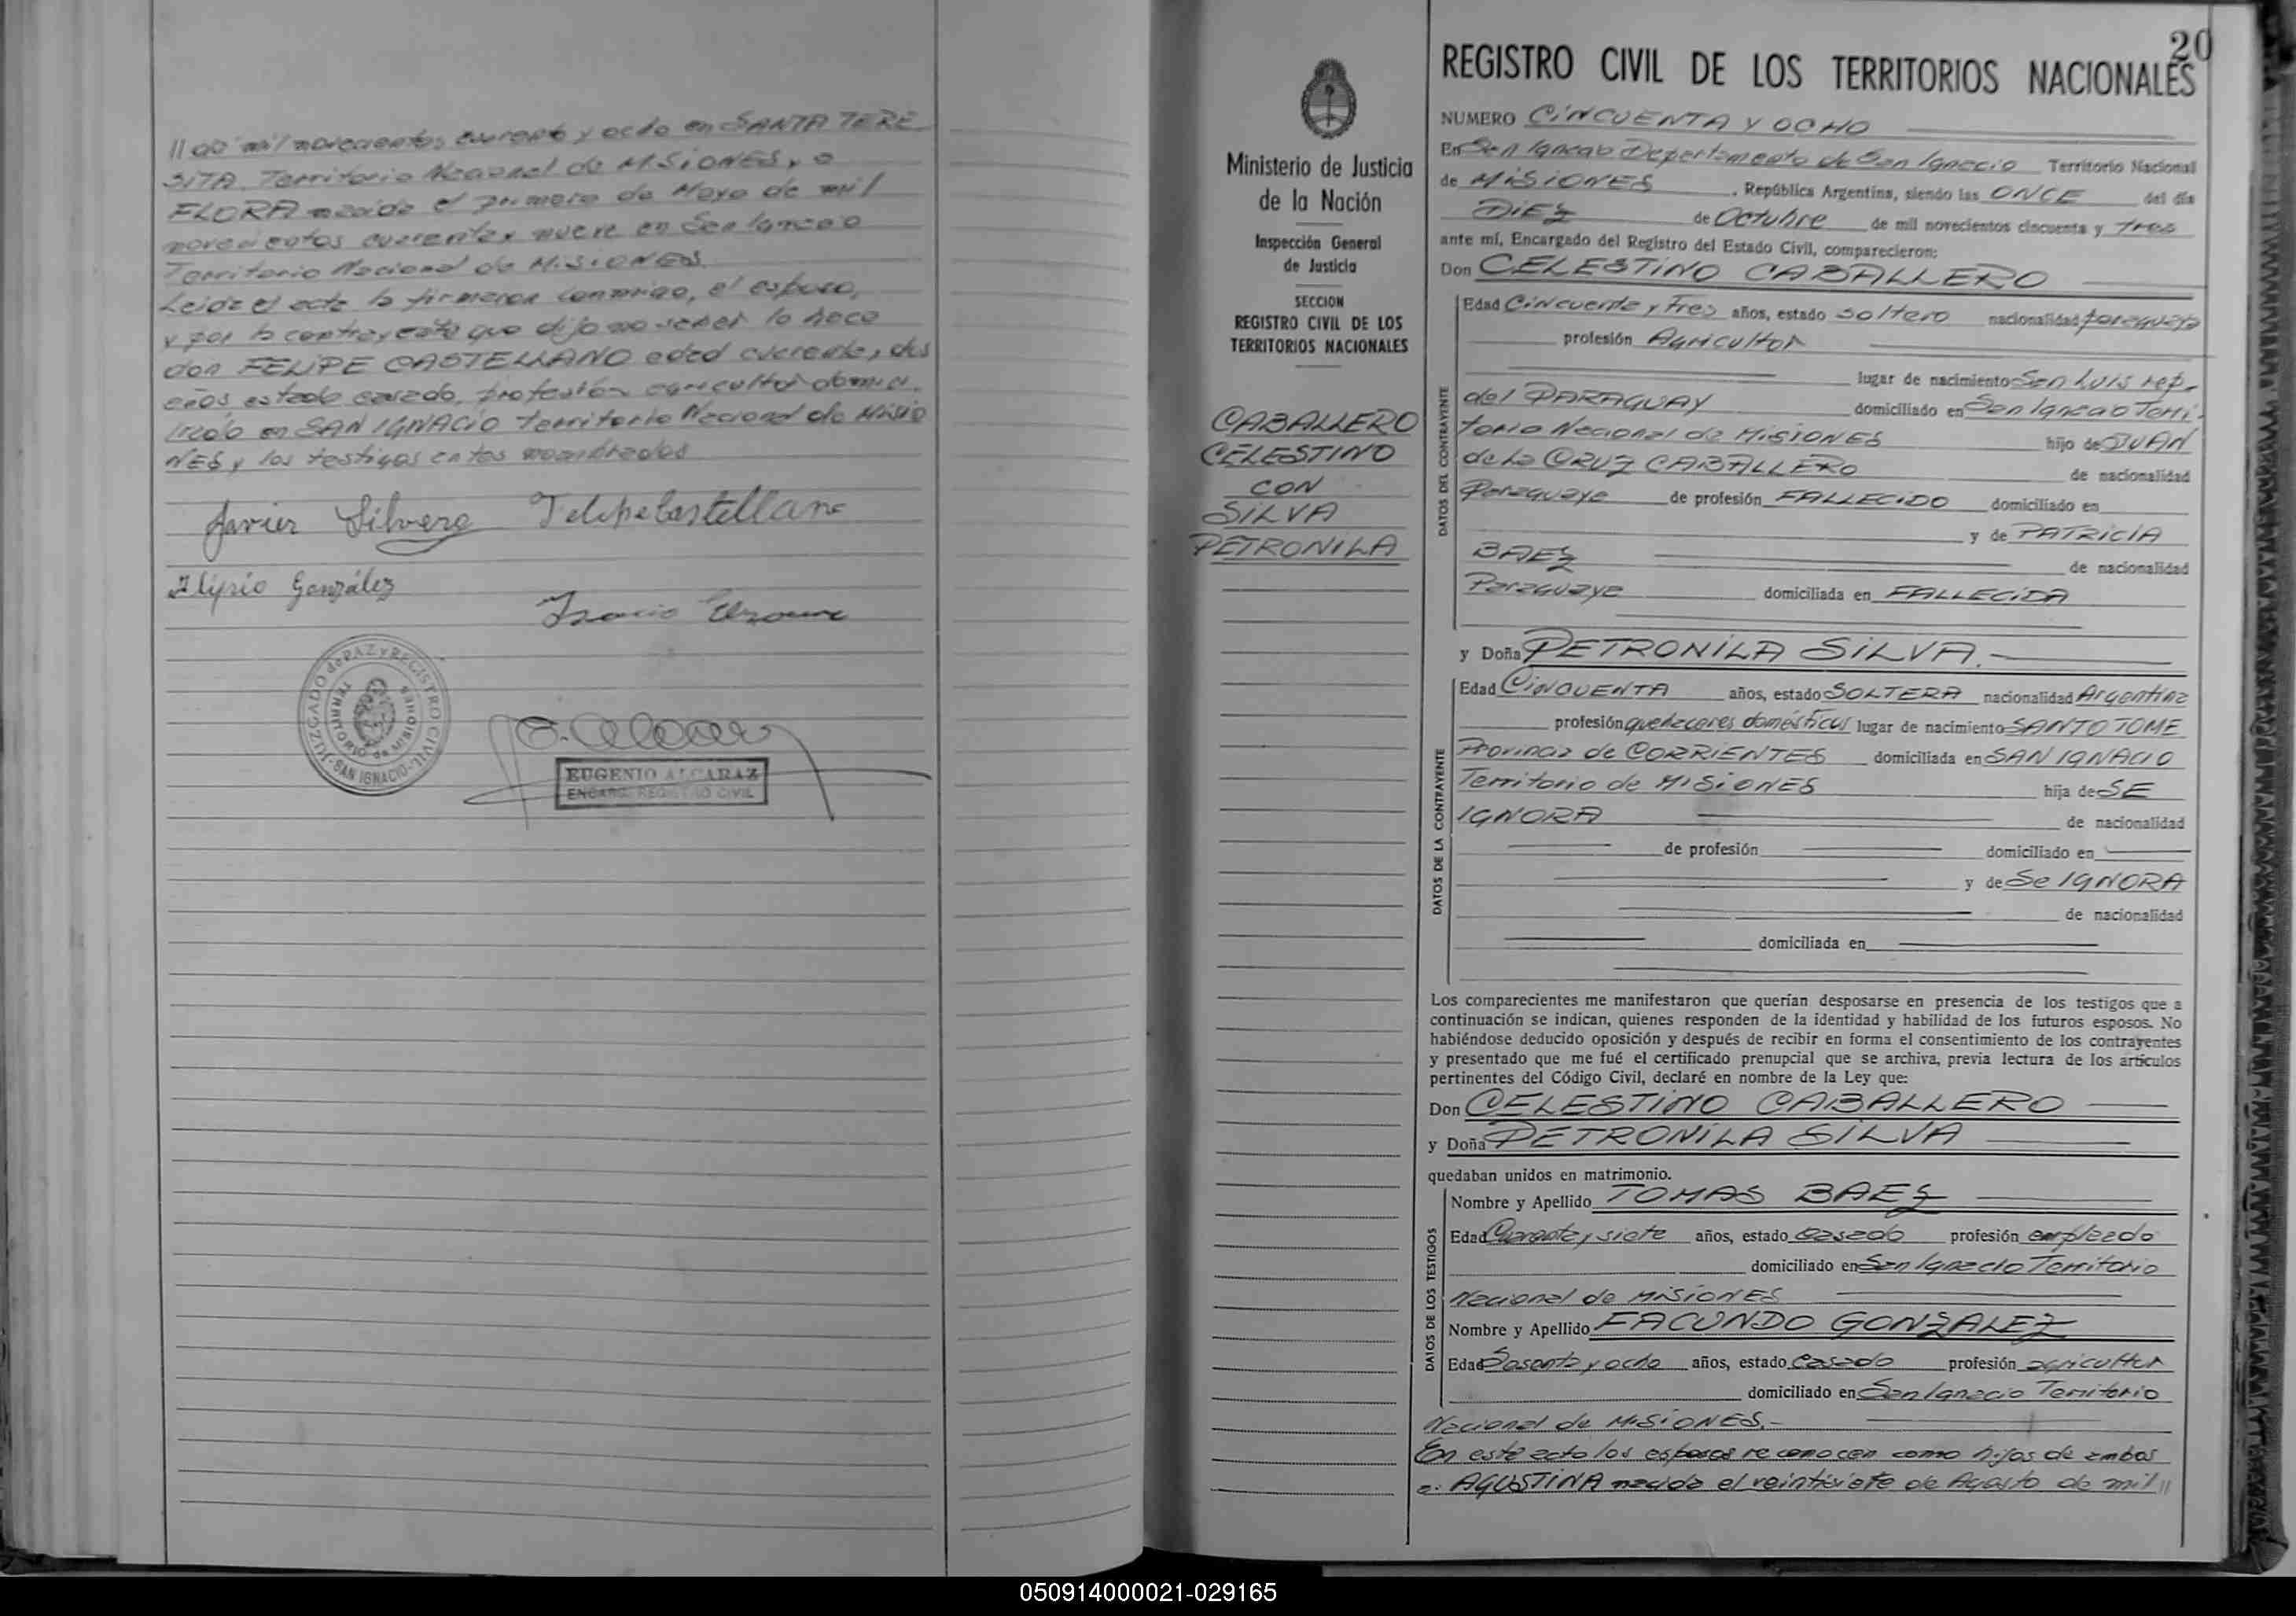 // de mil novecientos cuarenta y ocho en SANTA TERE
SITA, Territorio Nacional de MISIONES, y a
FLORA nacida el primero de Mayo de mil
novecientos cuarenta y nueve en San Ignacio
Territorio Nacional de MISIONES
Leida el acta la firmaron conmigo, el esposo,
y por la contrayente que dijo no saber lo hace
don FELIPE CASTELLANO edad cuarenta y dos
años estado casado, profesión agricultor domici-
liado en SAN IGNACIO Territorio Nacional de MISIO
NES y los testigos antes nombrados
Javier Silvero Felipe Castellano
Alipio González
JUZGADO de PAZ y REGISTRO CIVIL
TERRITORIO de MISIONES
SAN IGNACIO
EUGENIO ALCARAZ
ENCARG. REGISTRO CIVIL
Ministerio de Justicia
de la Nación
Inspección General
de Justicia
SECCION
REGISTRO CIVIL DE LOS
TERRITORIOS NACIONALES
CABALLERO
CELESTINO
CON
SILVA
PETRONILA
20
REGISTRO CIVIL DE LOS TERRITORIOS NACIONALES
NUMERO CINCUENTA Y OCHO
En San Ignacio Departamento de San Ignacio Territorio Nacional
de MISIONES, República Argentina, siendo las ONCE del día
DIEZ de Octubre de mil novecientos cincuenta y tres
ante mí, Encargado del Registro del Estado Civil, comparecieron:
Don CELESTINO CABALLERO
DATOS DEL CONTRAYENTE
Edad Cincuenta y Tres años, estado soltero nacionalidad paraguaya
profesión Agricultor
lugar de nacimiento San Luis rep.
del PARAGUAY domiciliado en San Ignacio Terri-
torio Nacional de MISIONES hijo de JUAN
de la CRUZ CABALLERO de nacionalidad
Paraguaya de profesión FALLECIDO domiciliado en
y de PATRICIA
BAEZ de nacionalidad
Paraguaya domiciliada en FALLECIDA
y Doña PETRONILA SILVA.
DATOS DE LA CONTRAYENTE
Edad CINCUENTA años, estado SOLTERA nacionalidad Argentina
profesión quehaceres domésticos lugar de nacimiento SANTO TOME
Provincia de CORRIENTES domiciliada en SAN IGNACIO
Territorio de MISIONES hija de SE
IGNORA de nacionalidad
de profesión domiciliado en
y de Se IGNORA
de nacionalidad
domiciliada en
Los comparecientes me manifestaron que querían desposarse en presencia de los testigos que a
continuación se indican, quienes responden de la identidad y habilidad de los futuros esposos. No
habiéndose deducido oposición y después de recibir en forma el consentimiento de los contrayentes
y presentado que me fué el certificado prenupcial que se archiva, previa lectura de los artículos
pertinentes del Código Civil, declaré en nombre de la Ley que:
Don CELESTINO CABALLERO
y Doña PETRONILA SILVA
quedaban unidos en matrimonio.
DATOS DE LOS TESTIGOS
Nombre y Apellido TOMAS BAEZ
Edad Cuarenta y siete años, estado casado profesión empleado
domiciliado en San Ignacio Territorio
Nacional de MISIONES
Nombre y Apellido FACUNDO GONZALEZ
Edad Sesenta y ocho años, estado casado profesión agricultor
domiciliado en San Ignacio Territorio
Nacional de MISIONES.-
En este acto los esposos reconocen como hijos de ambos
a: AGUSTINA nacida el veintisiete de Agosto de mil //
050914000021-029165